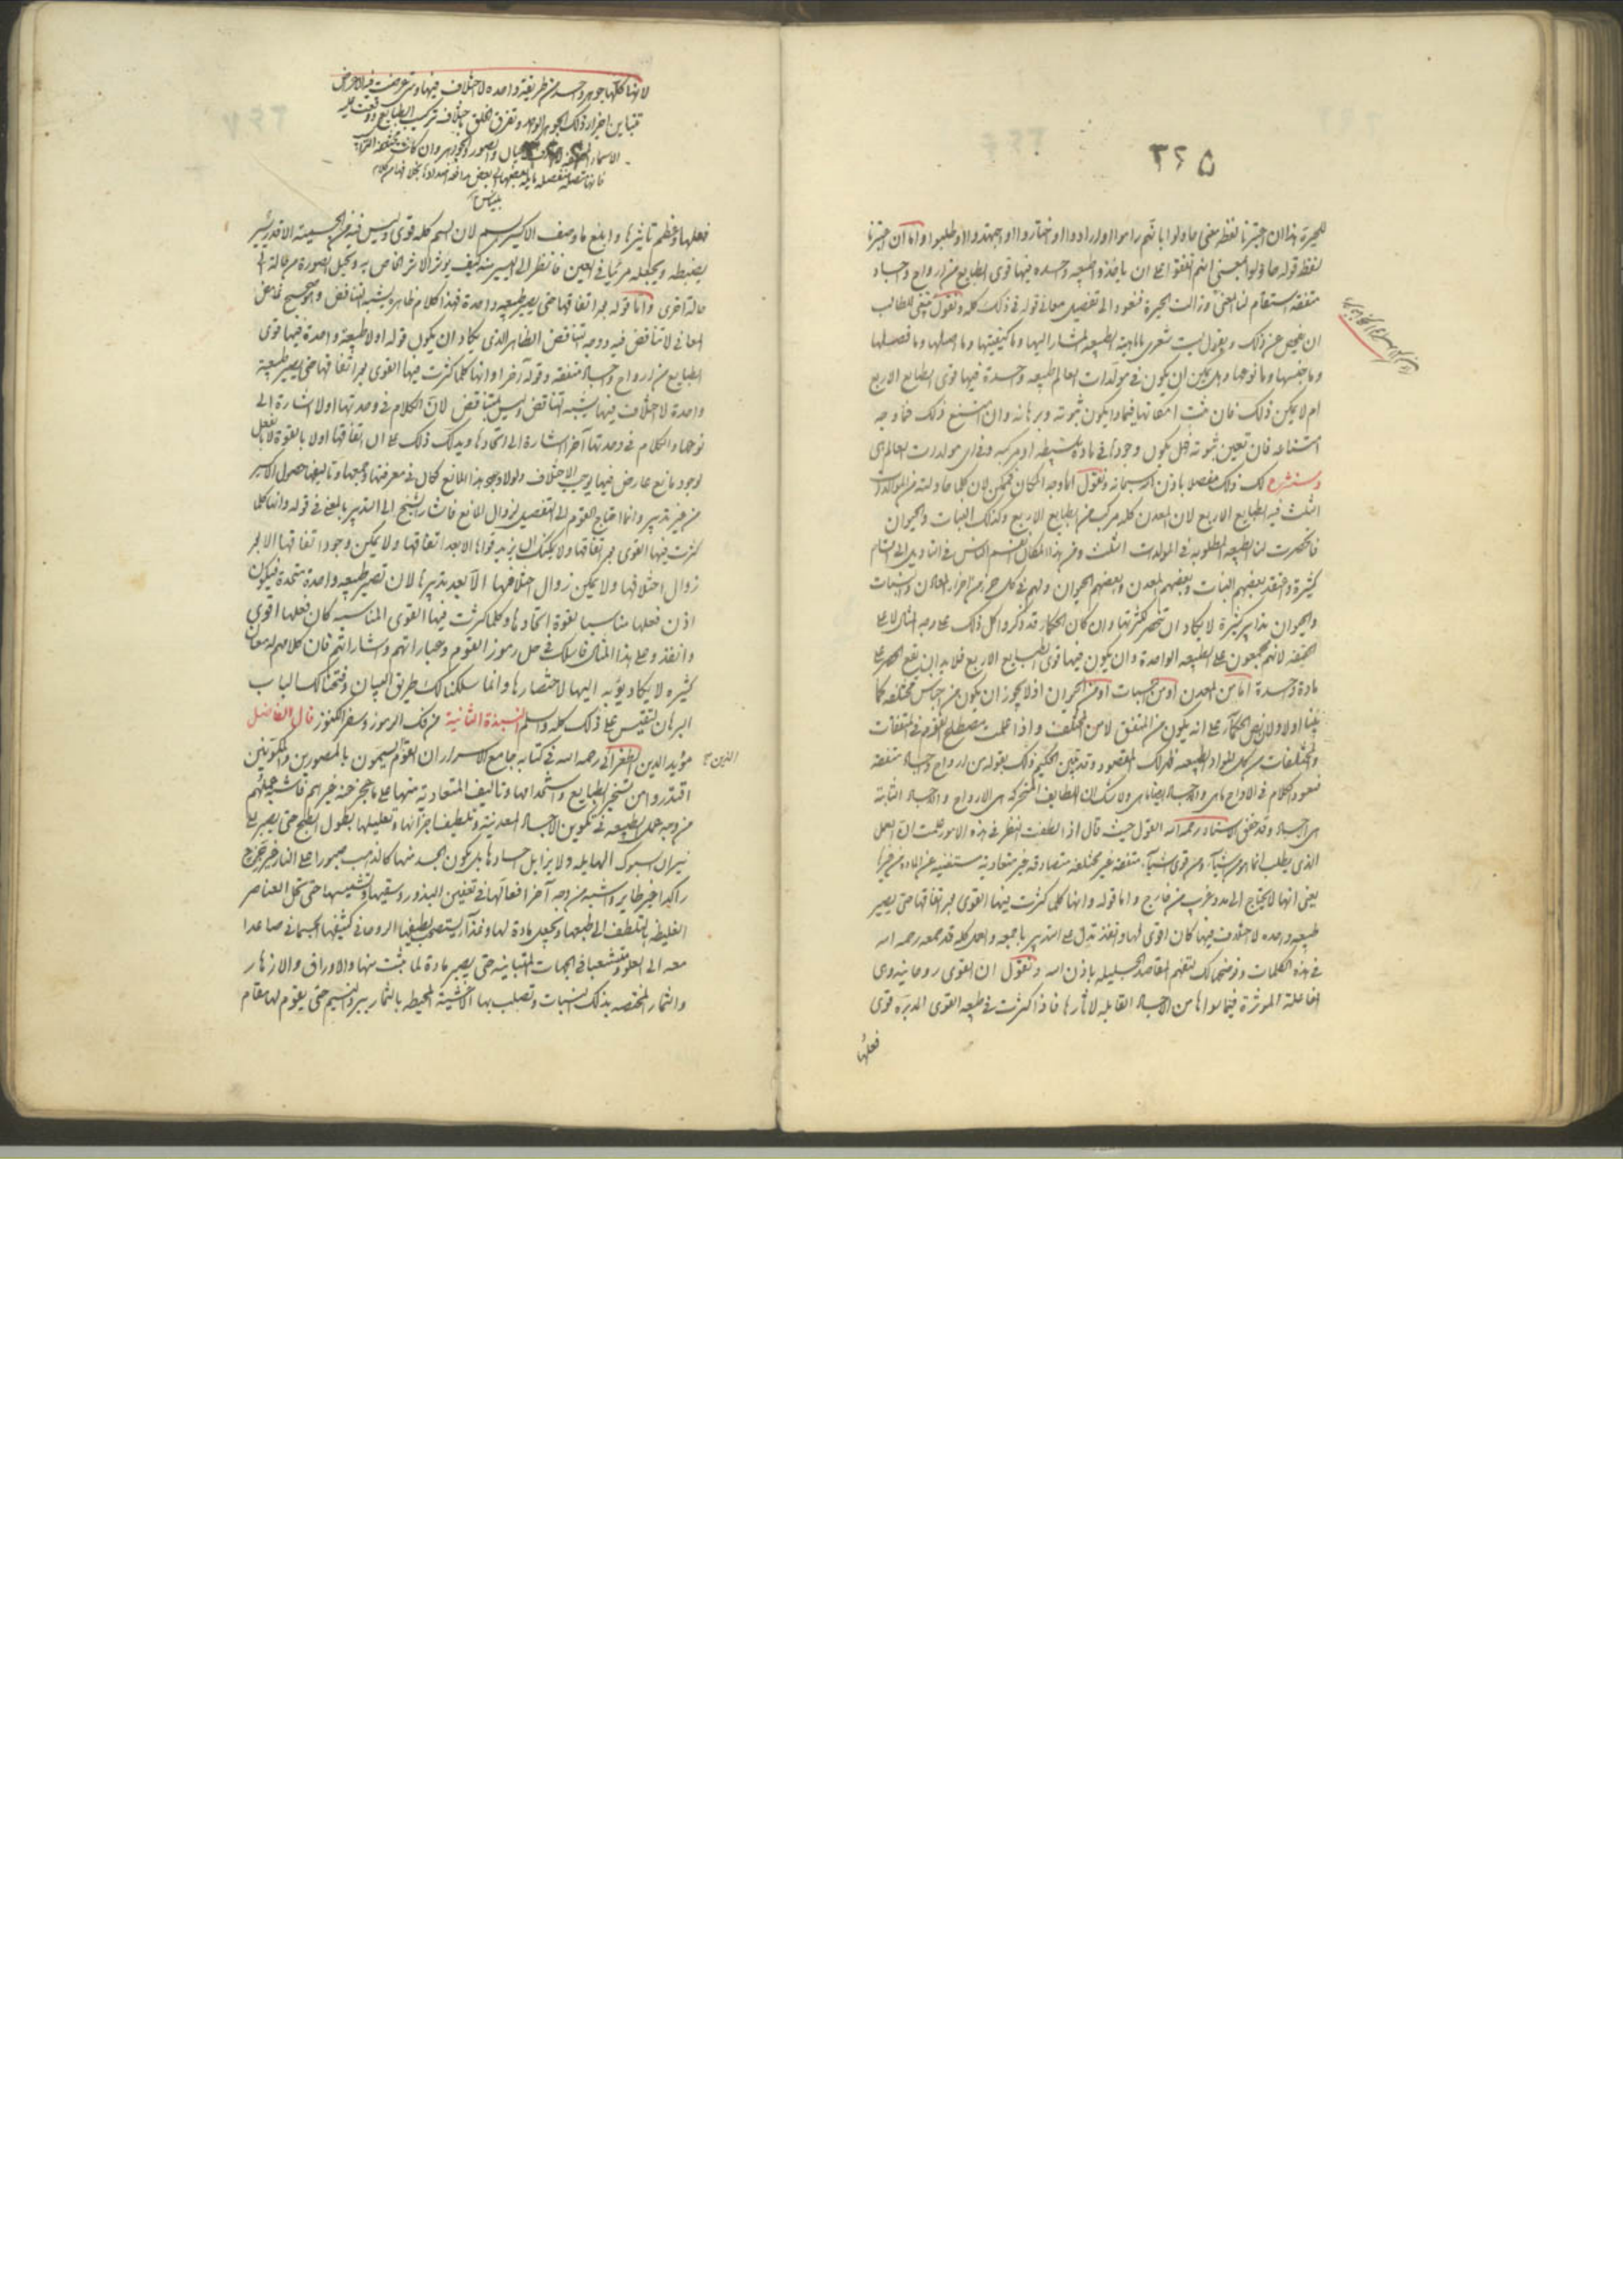 ٣٤٥
للحيرة هذا ان اعتبرنا لفظه بمعنى حاولوا بانهم راموا او ارادوا او اختاروا او اجتهدوا او طلبوا واما ان اعتبرنا
لفظ قوله حاولوا بمعنى انهم اتفقوا على ان ياخذوا طبيعه واحده فيها قوى الطبايع من ارواح واجساد
متفقه استقام لنا المعنى وزالت الحيرة فنعود الى تفصيل معانى قوله فى ذلك كله ونقول ينبغى للطالب
ان يفحص عن ذلك ويقول ليت شعرى ما ماهية الطبيعه المشار اليها وما كيفيتها وما اصلها وما فصلها
وما جنسها وما نوعها وهل يمكن ان يكون فى مولدات العالم طبيعه واحدة فيها قوى الطبايع الاربع
ام لا يمكن ذلك فان ثبت امكانها فبماذا يكون ثبوته وبرهانه وان امتنع ذلك فما وجه
امتناعه فان تعين ثبوته فهل يكون وجودها فى مادة بسيطه او مركبه وفى اى مولدات العالم هى
وسنشرح لك ذلك مفصلا باذن الله سبحانه ونقول اما وجه المكان فممكن لان كلما حاولته من المولدات
الثلث فيه الطبايع الاربع لان المعدن كله مركب من الطبايع الاربع وكذلك النبات والحيوان
فانحصرت لنا الطبيعه المطلوبه فى المولدات الثلث ومن هذا المكان انقسم الناس فى التاويل الى اقسام
كثيرة واعتقد بعضهم النبات وبعضهم المعدن وبعضهم الحيوان ولهم فى كل جزء من اجزاء المعادن والنبات
والحيوان تدابير كثيرة لا يكاد ان تنحصر لكثرتها وان كان الحكماء قد ذكروا كل ذلك على وجه المثال لا على
الحقيقه لانهم مجمعون على الطبيعه الواحدة وان يكون فيها قوى الطبايع الاربع فلا بد ان يقع الحصر على
مادة واحدة اما من المعدن او من النبات او من الحيوان اذ لا يجوز ان يكون من اجناس مختلفه كما
بينا اولا ولان نص الحكماء على انه يكون من المتفق لا من المختلف واذا علمت مصطلح القوم فى المتفقات
والمختلفات من كل المواد الطبيعه ظهر لك المقصود وقد بين الحكيم ذلك بقوله من ارواح واجساد متفقه
فنعود الكلام فى الارواح ماهى والاجساد ايضا ماهى ولا شك ان اللطايف المتحركه هى الارواح والاجساد الثابته
هى اجساد وقد حقق الاستاد رحمه الله القول حيث قال اذا لطفت النظر فى هذه الامور علمت ان العمل
الذى يطلب انما هو من اشياء ومن قوى اشياء متفقه غير مختلفه متصادقه غير متعاديه مستغنيه عن المادة من غيرها
يعنى انها لا يحتاج الى مدد غريب من خارج واما قوله وانها كلما كثرت فيها القوى مع اتفاقها حتى يصير
طبيعه واحده لا اختلاف فيها كان اقوى لها وانفذ تدل على التدبير باجمعه والعمل كله قد جمعه رحمه الله
فى هذه الكلمات ونوضحها لك لتفهم المقاصد الجليله باذن الله ونقول ان القوى روحانيه وهى
الفاعلة الموثرة فيما سواها من الاجساد القابله لاثارها فاذا كثرت فى طبيعه القوى المدبره قوى
فعلها
لانها كلها جوهر واحد من طريقة واحده لا اختلاف فيها ومتى عرضت فيه الاعراض
تباين اجزاء ذلك الجوهر الواحد وتفرق الخلق باختلاف تركيب الطبايع ووقعت عليه
فانها متصله منفصله
فعلها وعظم تاثيرها وابلغ ما وصف الاكسير بسم لان السم كله قوى وليس فيه من الجسميه الا قدر يسير
يضبطه ويجعله مرئيا فى العين فانظر الى اليسير منه كيف يوثر الاثر الخاص به ويحيل الصورة من حالة الى
حالة اخرى واما قوله مع اتفاقها حتى يصير طبيعه واحدة فهذا كلام ظاهره يشبه التناقض وهو صحيح غامض
المعانى لا تناقض فيه ووجه التناقض الظاهر الذى يكاد ان يكون قوله اولا طبيعة واحدة فيها قوى
الطبايع من ارواح واجساد متفقه وقوله آخرا وانها كلما كثرت فيها القوى مع اتفاقها حتى يصير طبيعة
واحدة لا اختلاف فيها يشبه التناقض وليس بتناقض لان الكلام فى وحدتها اولا اشارة الى
نوعها والكلام فى وحدتها آخرا اشارة الى اتحادها ويدلك ذلك على ان اتفاقها اولا بالقوة لا بالفعل
لوجود مانع عارض فيها يوجب الاختلاف ولولا وجود هذا المانع كان فى معرفتها وجمعها وتاليفها حصول الاكسير
من غير تدبير وانما احتاج القوم الى التفصيل لزوال المانع فاشار الشيخ الى التدبير بالمعنى فى قوله وانها كلما
كثرت فيها القوى مع اتفاقها ولا يمكنك ان يزيد قواها الا بعد اتفاقها ولا يمكن وجود اتفاقها الا مع
زوال اختلافها ولا يمكن زوال اختلافها الا بعد تدبيرها لان تصير طبيعه واحدة متحدة فيكون
اذن فعلها مناسبا لقوة اتحادها وكلما كثرت فيها القوى المناسبه كان فعلها اقوى
وانفذ وعلى هذا المثال فاسلك فى حل رموز القوم وعباراتهم واشاراتهم فان كلامهم له معان
كثيره لا يكاد يؤبه اليها لاختصارها وانما سلكنا لك طريق البيان وفتحنا لك الباب
البرهان لتقيس على ذلك كله والسلم النبذة الثانية من فك الرموز وسفر الكنوز قال الفاضل
مؤيد الدين الطغرائى رحمه الله فى كتابه جامع الاسرار ان القوم يسمون بالمصورين والمكونين الذين
اقتدروا من تسخير الطبايع واستخدامها وتاليف المتعاديه منها على ما عجز عنه غيرهم فاشبه عملهم
من وجه عمل الطبيعه فى تكوين الاجساد المعدنية وتلطيف اجزائها وتعليلها بطول الطبخ حتى يصبر على
نيران السبوك الهايله ولا يزايل اجسادها بل يكون الجسد منها كالذهب صبورا على النار غير
راكدا غير طاير واشبه من وجه آخر افعالها فى تعفين البذور وسقيها وتنميتها حتى تحل العناصر
الغليظه بالتلطف الى طبعها وتجعل مادة لها وغذاء ليستصحب لطيفها الروحانى كثيفها الجسمانى صاعدا
معه الى العلو ومتشعبا فى الجهات المتباينه حتى يصير مادة لما ينبت منها والاوراق والازهار
والثمار المختصه بذلك النبات وتصلب بها الاغشية المحيطه بالثمار ببرد النسيم حتى يقوم لها مقام